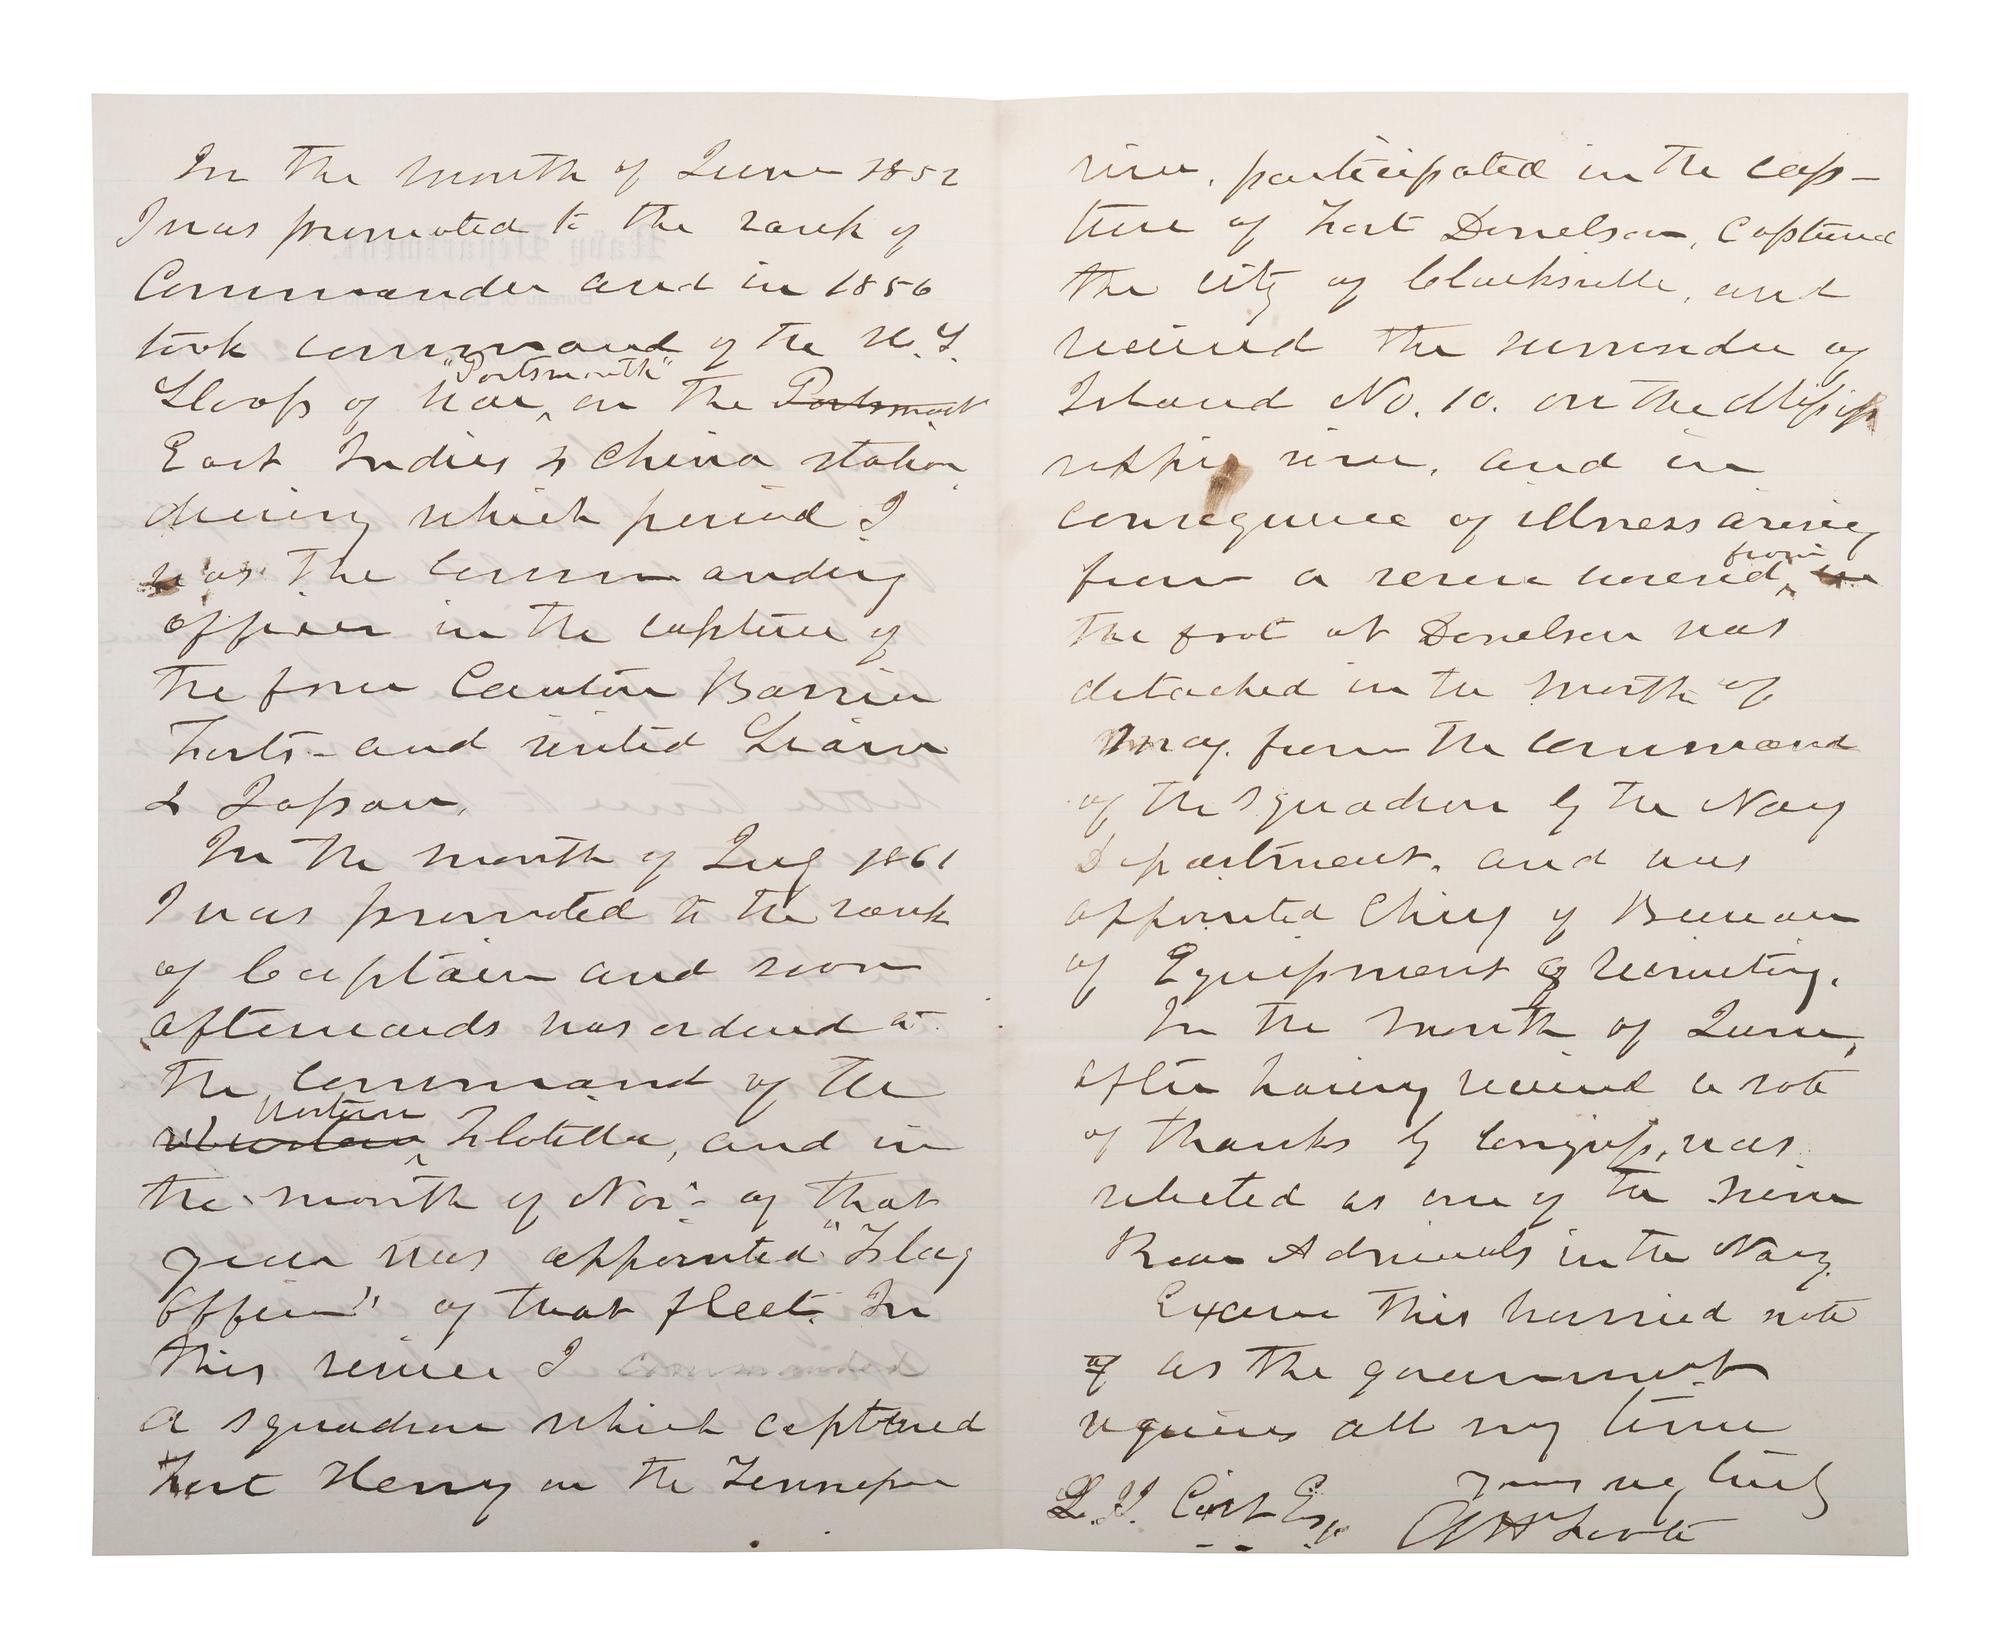 In the month of June 1852
I was promoted to the rank of
Commander and in 1856
took command of the U.S.
Sloop of War "Portsmouth" on the Portsmouth
East Indies & China station
during which period I
was the Commanding
officer in the capture of
the four Canton Barrier
Forts - and visited Siam
& Japan.
In the month of July 1861
I was promoted to the rank
of Captain and soon
afterwards was ordered to
the Command of the
Western Flotilla, and in
the month of Nov. of that
year was appointed "Flag
Officer" of that fleet. In
this service I commanded
a squadron which captured
Fort Henry on the Tennessee
river, participated in the cap-
ture of Fort Donelson, captured
the city of Clarksville, and
received the surrender of
Island No. 10. on the Missis
sippi river, and in
consequence of illness arising
from a severe wound, from in
the foot at Donelson was
detached in the month of
May. from the command
of the squadron by the Navy
Department. and was
appointed Chief of Bureau
of Equipment & Recruiting.
In the month of June,
after having received a vote
of thanks by Congress, was
selected as one of the nine
Rear Admirals in the Navy
Excuse this hurried note
of as the government
requires all my time
Yours very truly
L.J. Cist Esq. AH Foote